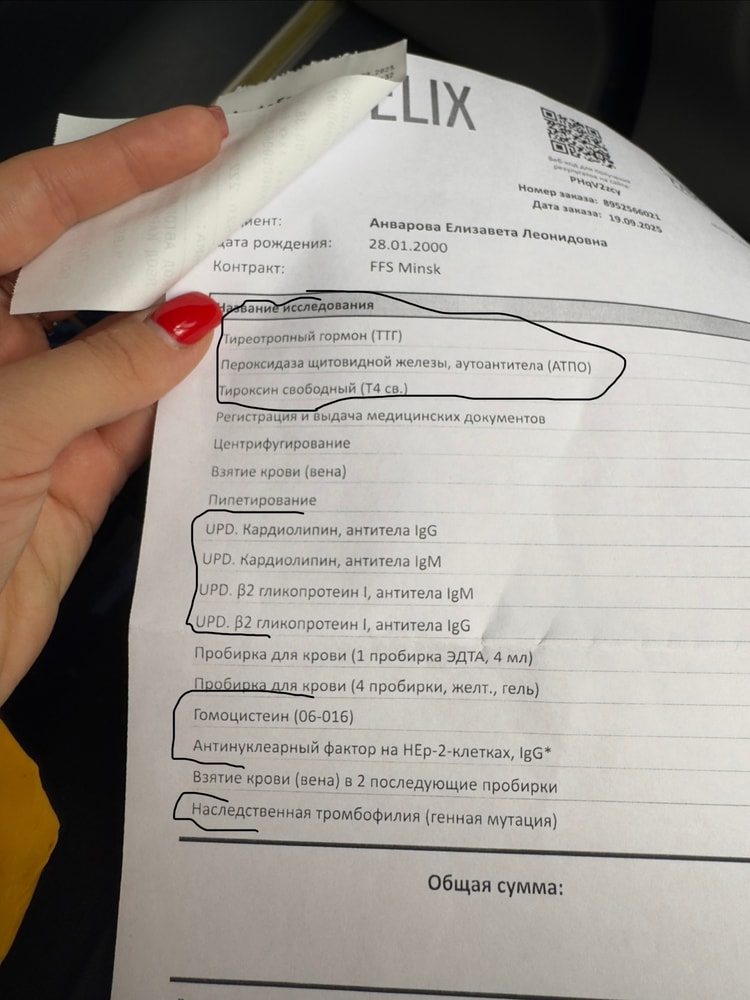 ELIX
Веб-код для получения
результатов на сайте
PHqV2zcy
Номер заказа: 8952566021
Дата заказа: 19.09.2025
Анварова Елизавета Леонидовна
дата рождения: 28.01.2000
Контракт: FFS Minsk
Название исследования
Тиреотропный гормон (ТТГ)
Пероксидаза щитовидной железы, аутоантитела (АТПО)
Тироксин свободный (Т4 св.)
Регистрация и выдача медицинских документов
Центрифугирование
Взятие крови (вена)
Пипетирование
UPD. Кардиолипин, антитела IgG
UPD. Кардиолипин, антитела IgM
UPD. β2 гликопротеин I, антитела IgM
UPD. β2 гликопротеин I, антитела IgG
Пробирка для крови (1 пробирка ЭДТА, 4 мл)
Пробирка для крови (4 пробирки, желт., гель)
Гомоцистеин (06-016)
Антинуклеарный фактор на HEp-2-клетках, IgG*
Взятие крови (вена) в 2 последующие пробирки
Наследственная тромбофилия (генная мутация)
Общая сумма: